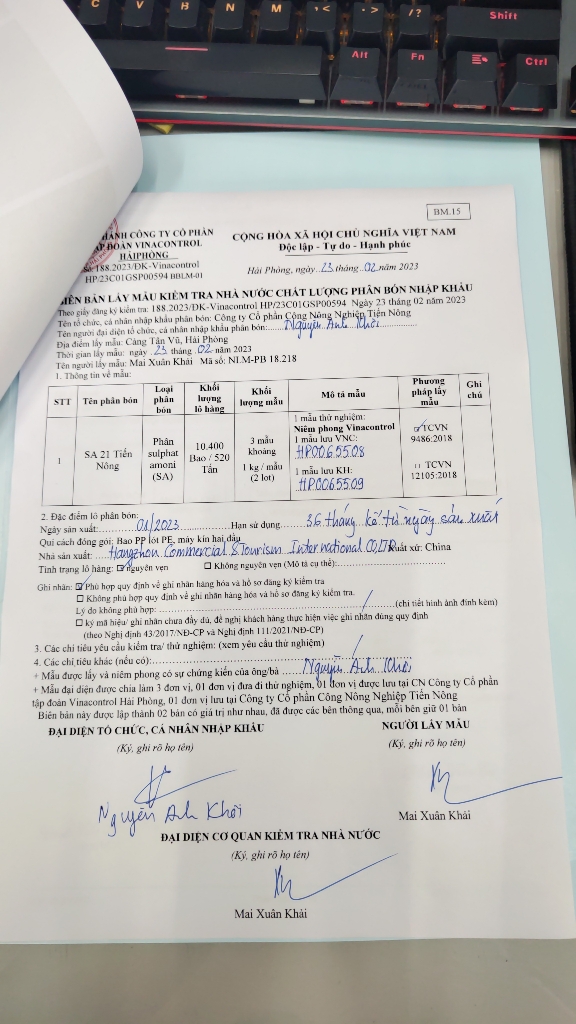 C V B N M , < . > / ? Shift
Alt Fn Ctrl
BM.15
HÁNH CÔNG TY CỔ PHẦN
ẬP ĐOÀN VINACONTROL
HẢI PHÒNG
Số 188.2023/ĐK-Vinacontrol
HP/23C01GSP00594 BBLM-01
CỘNG HÒA XÃ HỘI CHỦ NGHĨA VIỆT NAM
Độc lập - Tự do - Hạnh phúc
Hải Phòng, ngày 23 tháng 02 năm 2023
IÊN BẢN LẤY MẪU KIỂM TRA NHÀ NƯỚC CHẤT LƯỢNG PHÂN BÓN NHẬP KHẨU
Theo giấy đăng ký kiểm tra: 188.2023/ĐK-Vinacontrol HP/23C01GSP00594 Ngày 23 tháng 02 năm 2023
Tên tổ chức, cá nhân nhập khẩu phân bón: Công ty Cổ phần Công Nông Nghiệp Tiến Nông
Tên người đại diện tổ chức, cá nhân nhập khẩu phân bón: Nguyễn Anh Khôi
Địa điểm lấy mẫu: Cảng Tân Vũ, Hải Phòng
Thời gian lấy mẫu: ngày 23 tháng 02 năm 2023
Tên người lấy mẫu: Mai Xuân Khải Mã số: NLM-PB 18.218
1. Thông tin về mẫu:
STT Tên phân bón Loại phân bón Khối lượng lô hàng Khối lượng mẫu Mô tả mẫu Phương pháp lấy mẫu Ghi chú
1 SA 21 Tiến Nông Phân sulphat amoni (SA) 10.400 Bao / 520 Tấn 3 mẫu khoảng 1 kg / mẫu (2 lot) 1 mẫu thử nghiệm: Niêm phong Vinacontrol 1 mẫu lưu VNC: HP0065508 1 mẫu lưu KH: HP0065509 ☑ TCVN 9486:2018 □ TCVN 12105:2018
2. Đặc điểm lô phân bón:
Ngày sản xuất: 01/2023 Hạn sử dụng 36 tháng kể từ ngày sản xuất
Qui cách đóng gói: Bao PP lót PE, máy kín hai đầu
Nhà sản xuất: Hangzhou Commercial & Tourism International CO,LTD Xuất xứ: China
Tình trạng lô hàng: ☑ nguyên vẹn ☐ Không nguyên vẹn (Mô tả cụ thể):
Ghi nhãn: ☑ Phù hợp quy định về ghi nhãn hàng hóa và hồ sơ đăng ký kiểm tra
☐ Không phù hợp quy định về ghi nhãn hàng hóa và hồ sơ đăng ký kiểm tra.
Lý do không phù hợp: / (chi tiết hình ảnh đính kèm)
☐ ký mã hiệu/ ghi nhãn chưa đầy đủ, đề nghị khách hàng thực hiện việc ghi nhãn đúng quy định
(theo Nghị định 43/2017/NĐ-CP và Nghị định 111/2021/NĐ-CP)
3. Các chỉ tiêu yêu cầu kiểm tra/ thử nghiệm: (xem yêu cầu thử nghiệm)
4. Các chỉ tiêu khác (nếu có): /
+ Mẫu được lấy và niêm phong có sự chứng kiến của ông/bà Nguyễn Anh Khôi
+ Mẫu đại diện được chia làm 3 đơn vị, 01 đơn vị đưa đi thử nghiệm, 01 đơn vị được lưu tại CN Công ty Cổ phần
tập đoàn Vinacontrol Hải Phòng, 01 đơn vị lưu tại Công ty Cổ phần Công Nông Nghiệp Tiến Nông
Biên bản này được lập thành 02 bản có giá trị như nhau, đã được các bên thông qua, mỗi bên giữ 01 bản
ĐẠI DIỆN TỔ CHỨC, CÁ NHÂN NHẬP KHẨU NGƯỜI LẤY MẪU
(Ký, ghi rõ họ tên) (Ký, ghi rõ họ tên)
Nguyễn Anh Khôi Mai Xuân Khải
ĐẠI DIỆN CƠ QUAN KIỂM TRA NHÀ NƯỚC
(Ký, ghi rõ họ tên)
Mai Xuân Khải